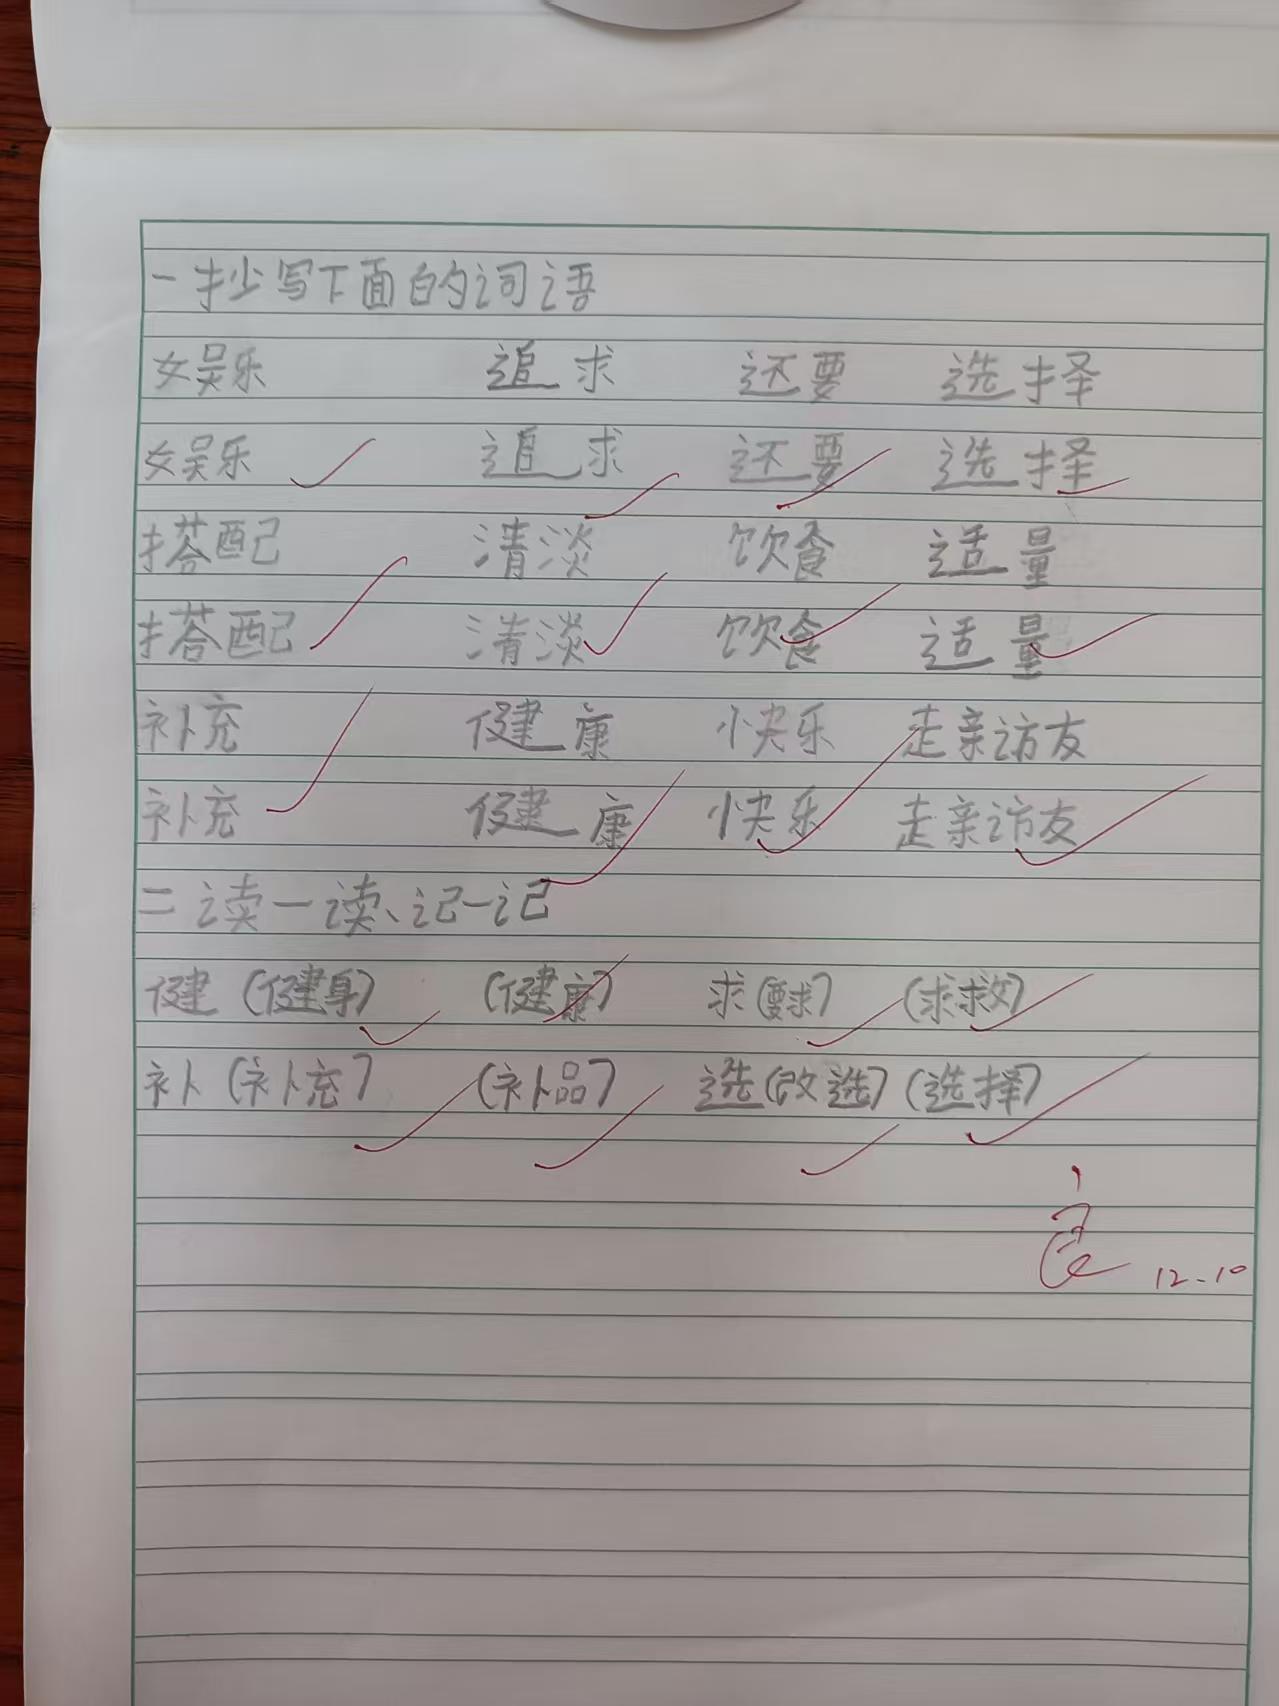 一抄写下面的词语
娱乐 追求 还要 选择
娱乐 追求 还要 选择
搭配 清淡 饮食 适量
搭配 清淡 饮食 适量
补充 健康 快乐 走亲访友
补充 健康 快乐 走亲访友
二读一读、记一记
健(健身) (健康) 求(要求) (求救)
补(补充) (补品) 选(改选)(选择)
12-10